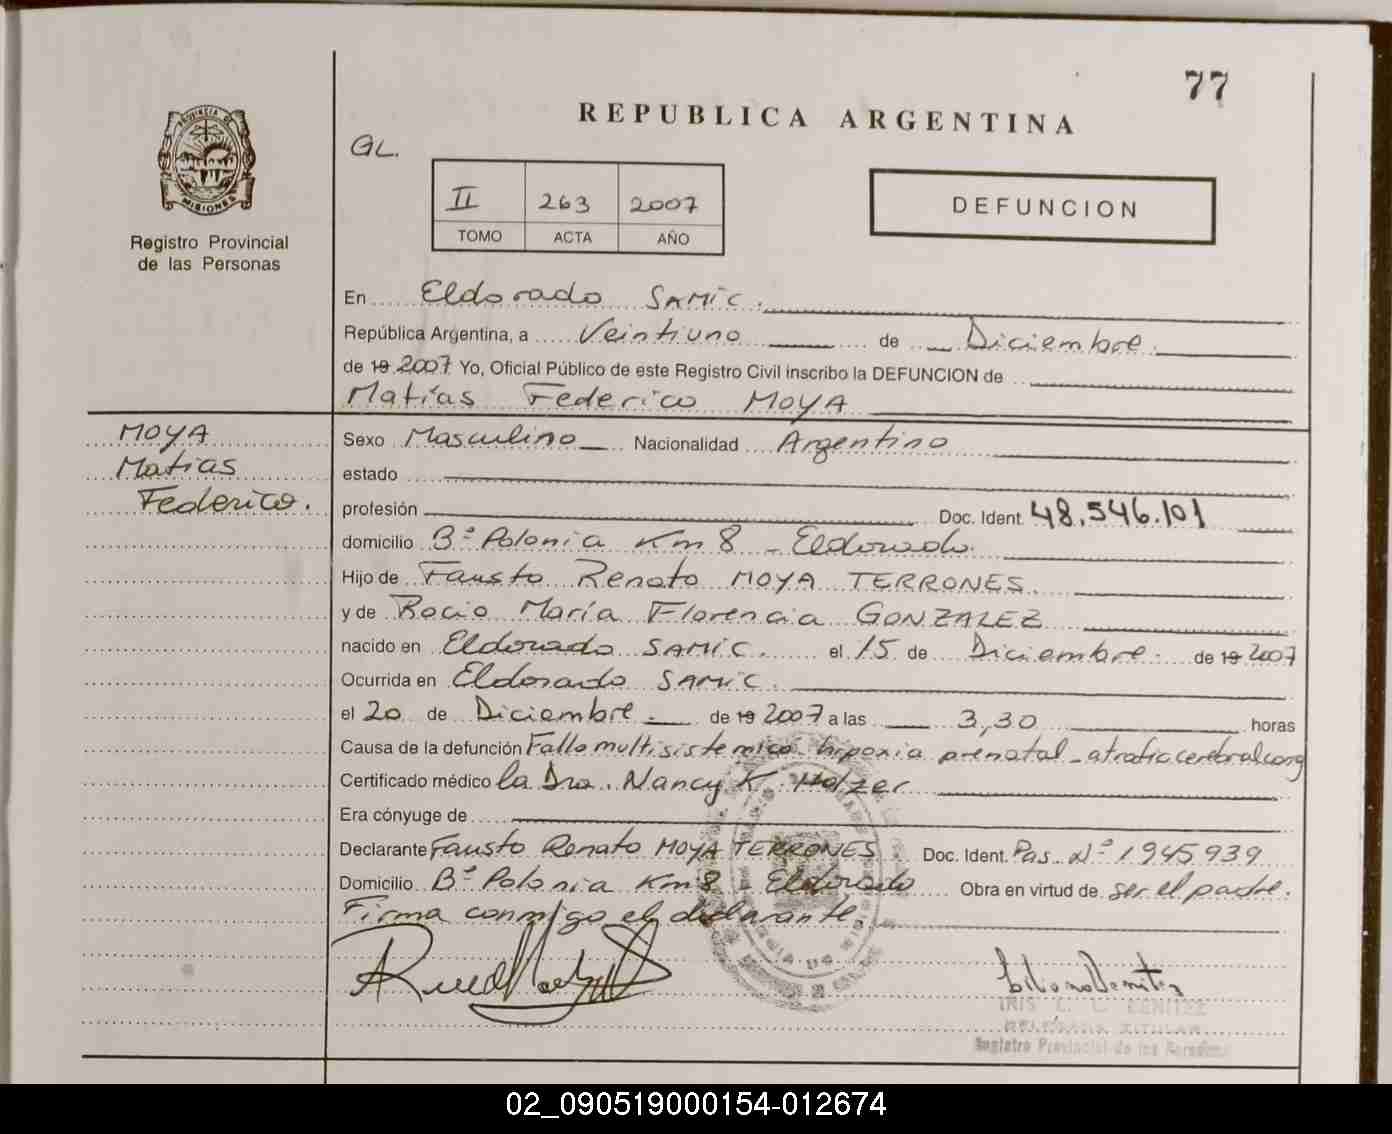 77
REPUBLICA ARGENTINA
PROVINCIA DE
MISIONES
Registro Provincial
de las Personas
GL.
II 263 2007
TOMO ACTA AÑO
DEFUNCION
En Eldorado SAMIC.
República Argentina, a Veintiuno de Diciembre.
de 19 2007 Yo, Oficial Público de este Registro Civil inscribo la DEFUNCION de
Matías Federico MOYA
MOYA
Matías
Federico.
Sexo Masculino Nacionalidad Argentino
estado
profesión Doc. Ident. 48.546.101
domicilio Bº Polonia Km 8 - Eldorado.
Hijo de Fausto Renato MOYA TERRONES.
y de Rocio María Florencia GONZALEZ
nacido en Eldorado SAMIC. el 15 de Diciembre. de 19 2007
Ocurrida en Eldorado SAMIC.
el 20 de Diciembre. de 19 2007 a las 3,30 horas
Causa de la defunción Fallo multisistemico - hipoxia prenatal - atrofia cerebral cong
Certificado médico la Dra. Nancy K. Holzer
Era cónyuge de
Declarante Fausto Renato MOYA TERRONES Doc. Ident. Pas. Nº 1945939
Domicilio Bº Polonia Km 8 - Eldorado Obra en virtud de ser el padre.
Firma conmigo el declarante.
IRIS L. C. BENITEZ
DELEGADA TITULAR
Registro Provincial de las Personas
02_090519000154-012674